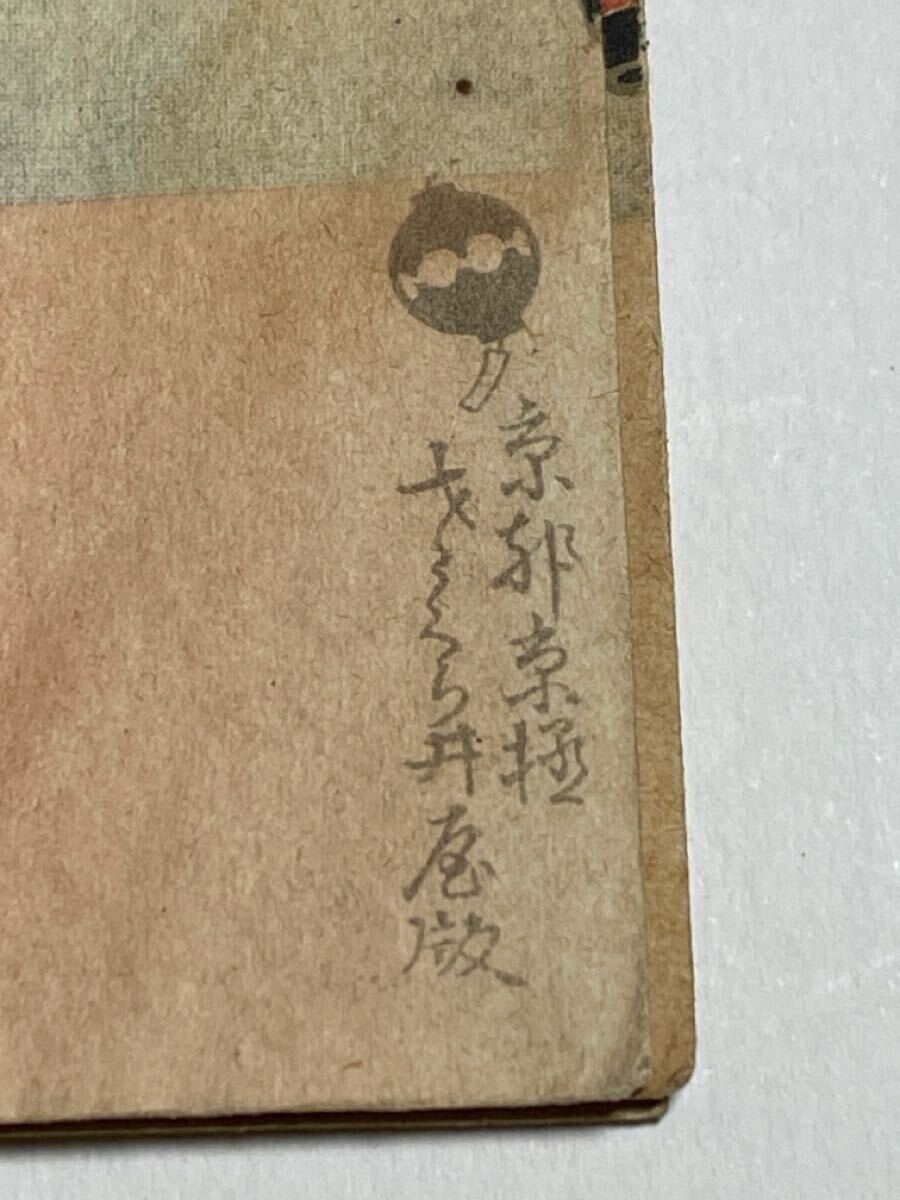 京都京極
さくら井屋版